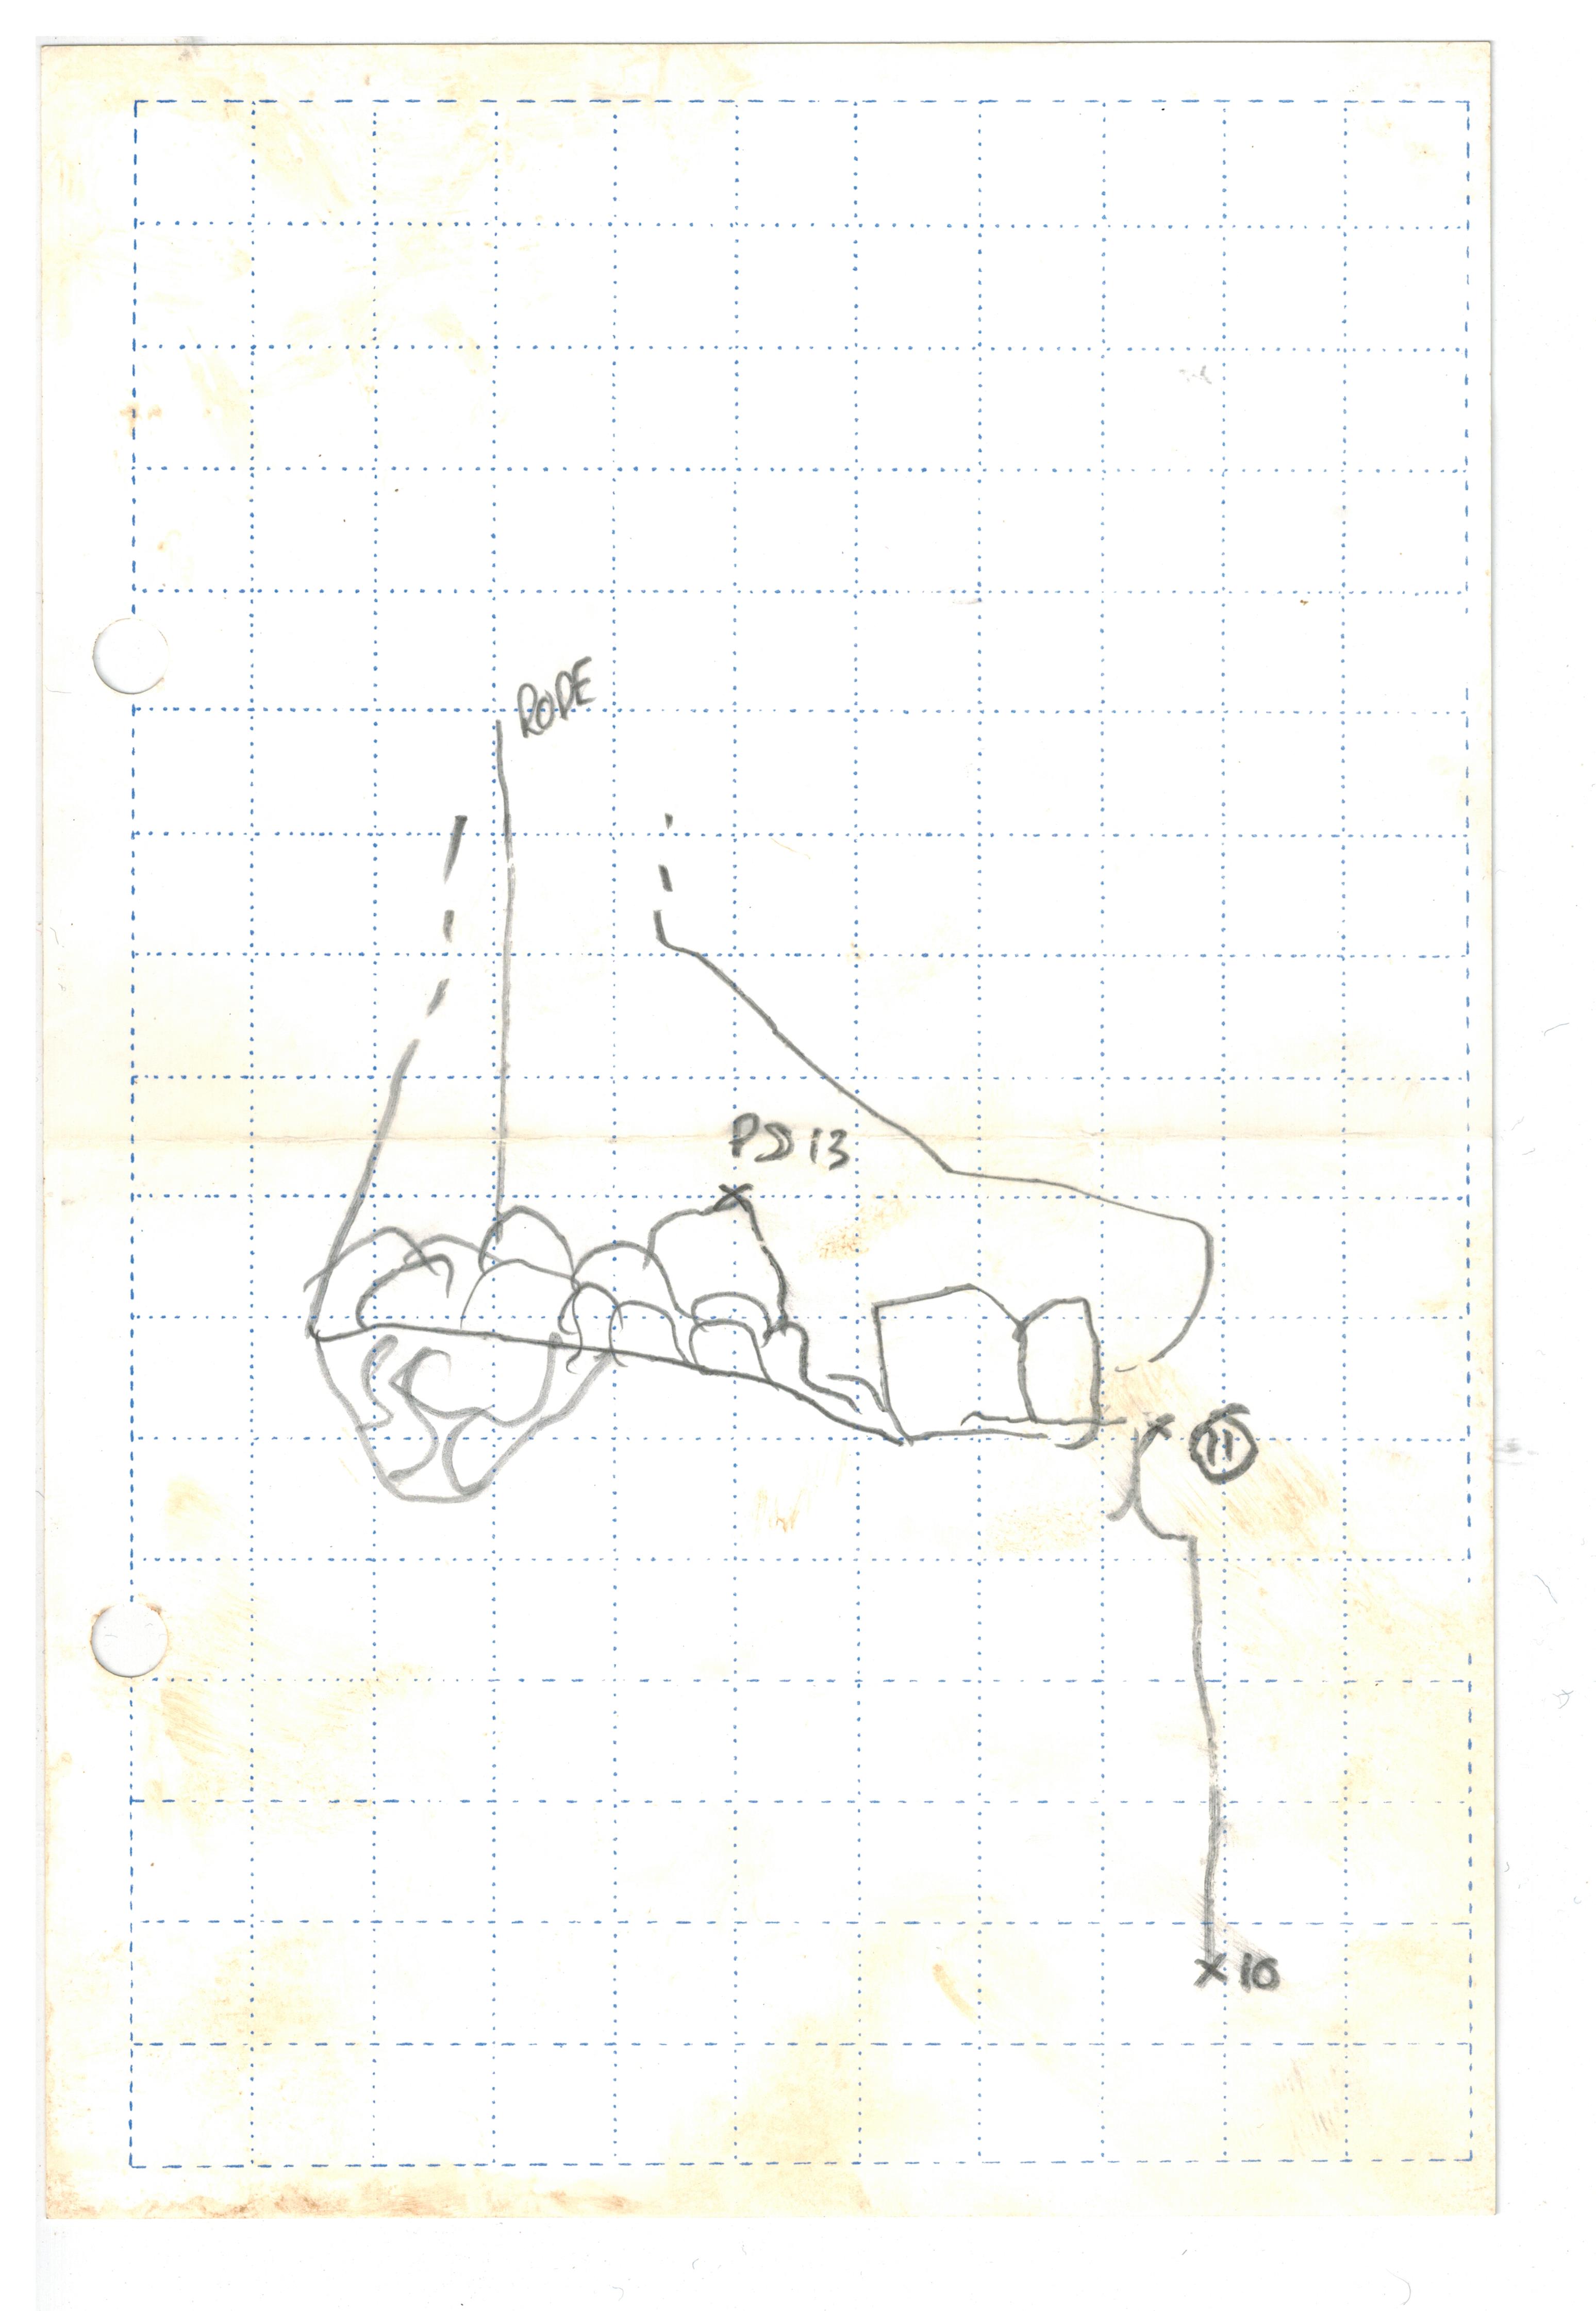 ROPE
PS 13
11
10